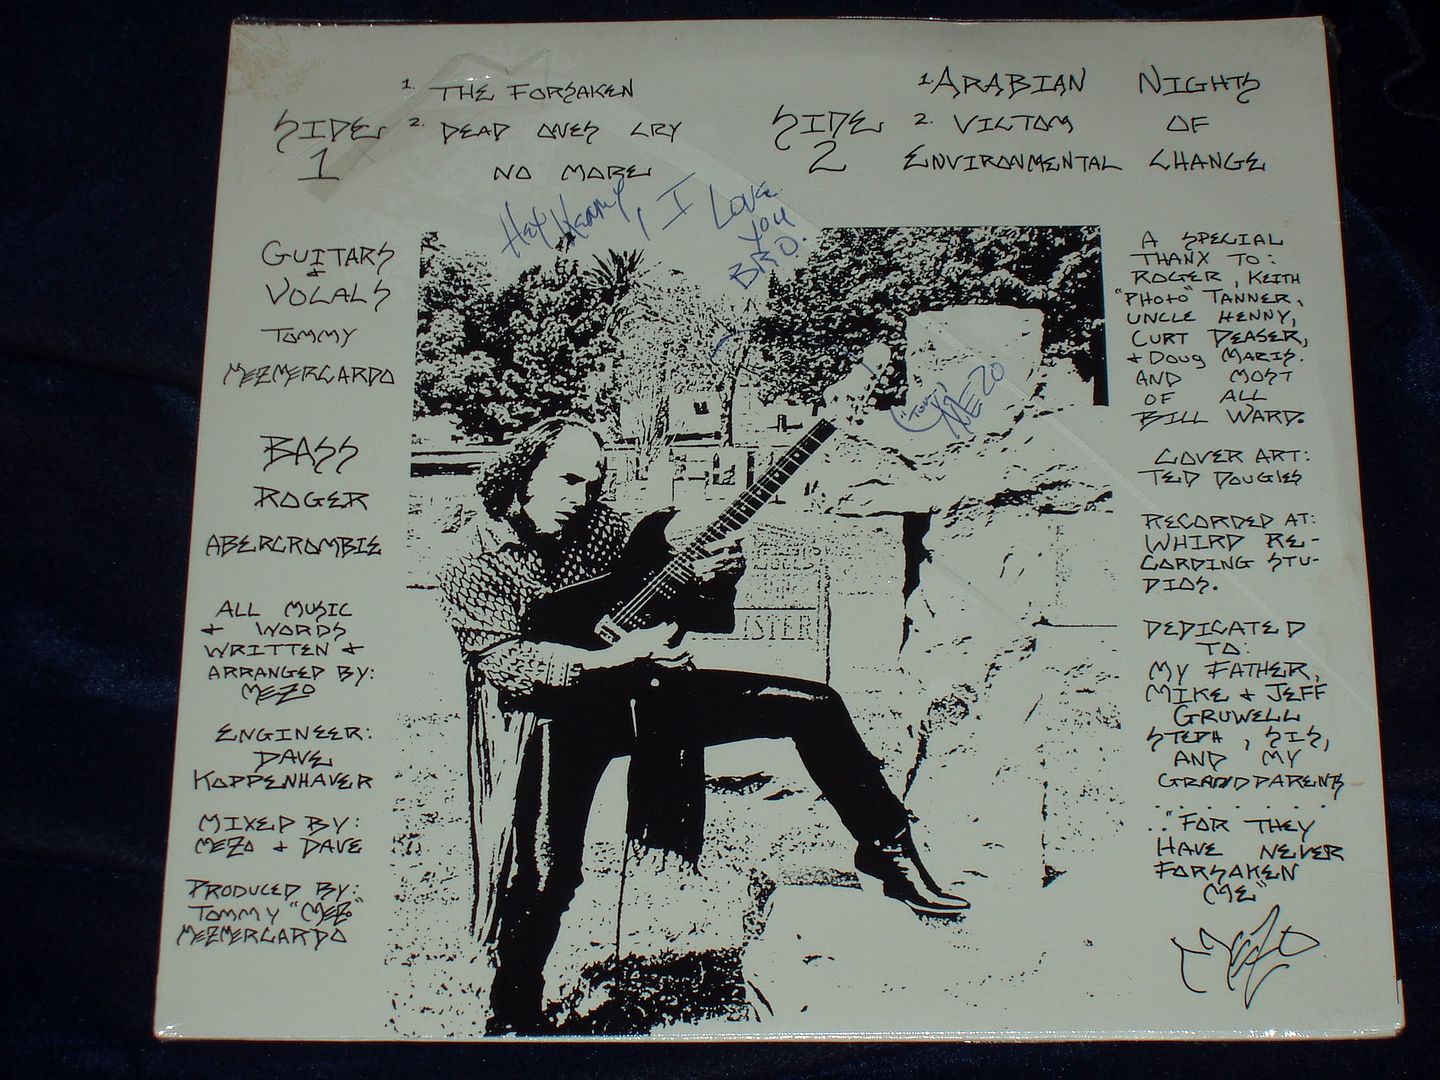 SIDE 1
1. THE FORSAKEN
2. DEAD ONES CRY
NO MORE
SIDE 2
1. ARABIAN NIGHTS
2. VICTOM OF
ENVIRONMENTAL CHANGE
HEY HENNY, I LOVE
YOU
BRO.
GUITARS
+
VOCALS
TOMMY
MEZMERCARDO
BASS
ROGER
ABERCROMBIE
ALL MUSIC
+ WORDS
WRITTEN +
ARRANGED BY:
MEZO
ENGINEER:
DAVE
KOPPENHAVER
MIXED BY:
MEZO + DAVE
PRODUCED BY:
TOMMY "MEZO"
MEZMERCARDO
MEZO
LISTER
A SPECIAL
THANX TO:
ROGER, KEITH
"PHOTO" TANNER,
UNCLE HENNY,
CURT DEASER,
+ DOUG MARIS.
AND MOST
OF ALL
BILL WARD.
COVER ART:
TED DOUGLES
RECORDED AT:
WHIRD RE-
CORDING STU-
DIOS.
DEDICATED
TO:
MY FATHER,
MIKE + JEFF
GRUWELL
STEPH, SIS,
AND MY
GRANDPARENTS
. . . . . . .
.."FOR THEY
HAVE NEVER
FORSAKEN
ME"
MEZO